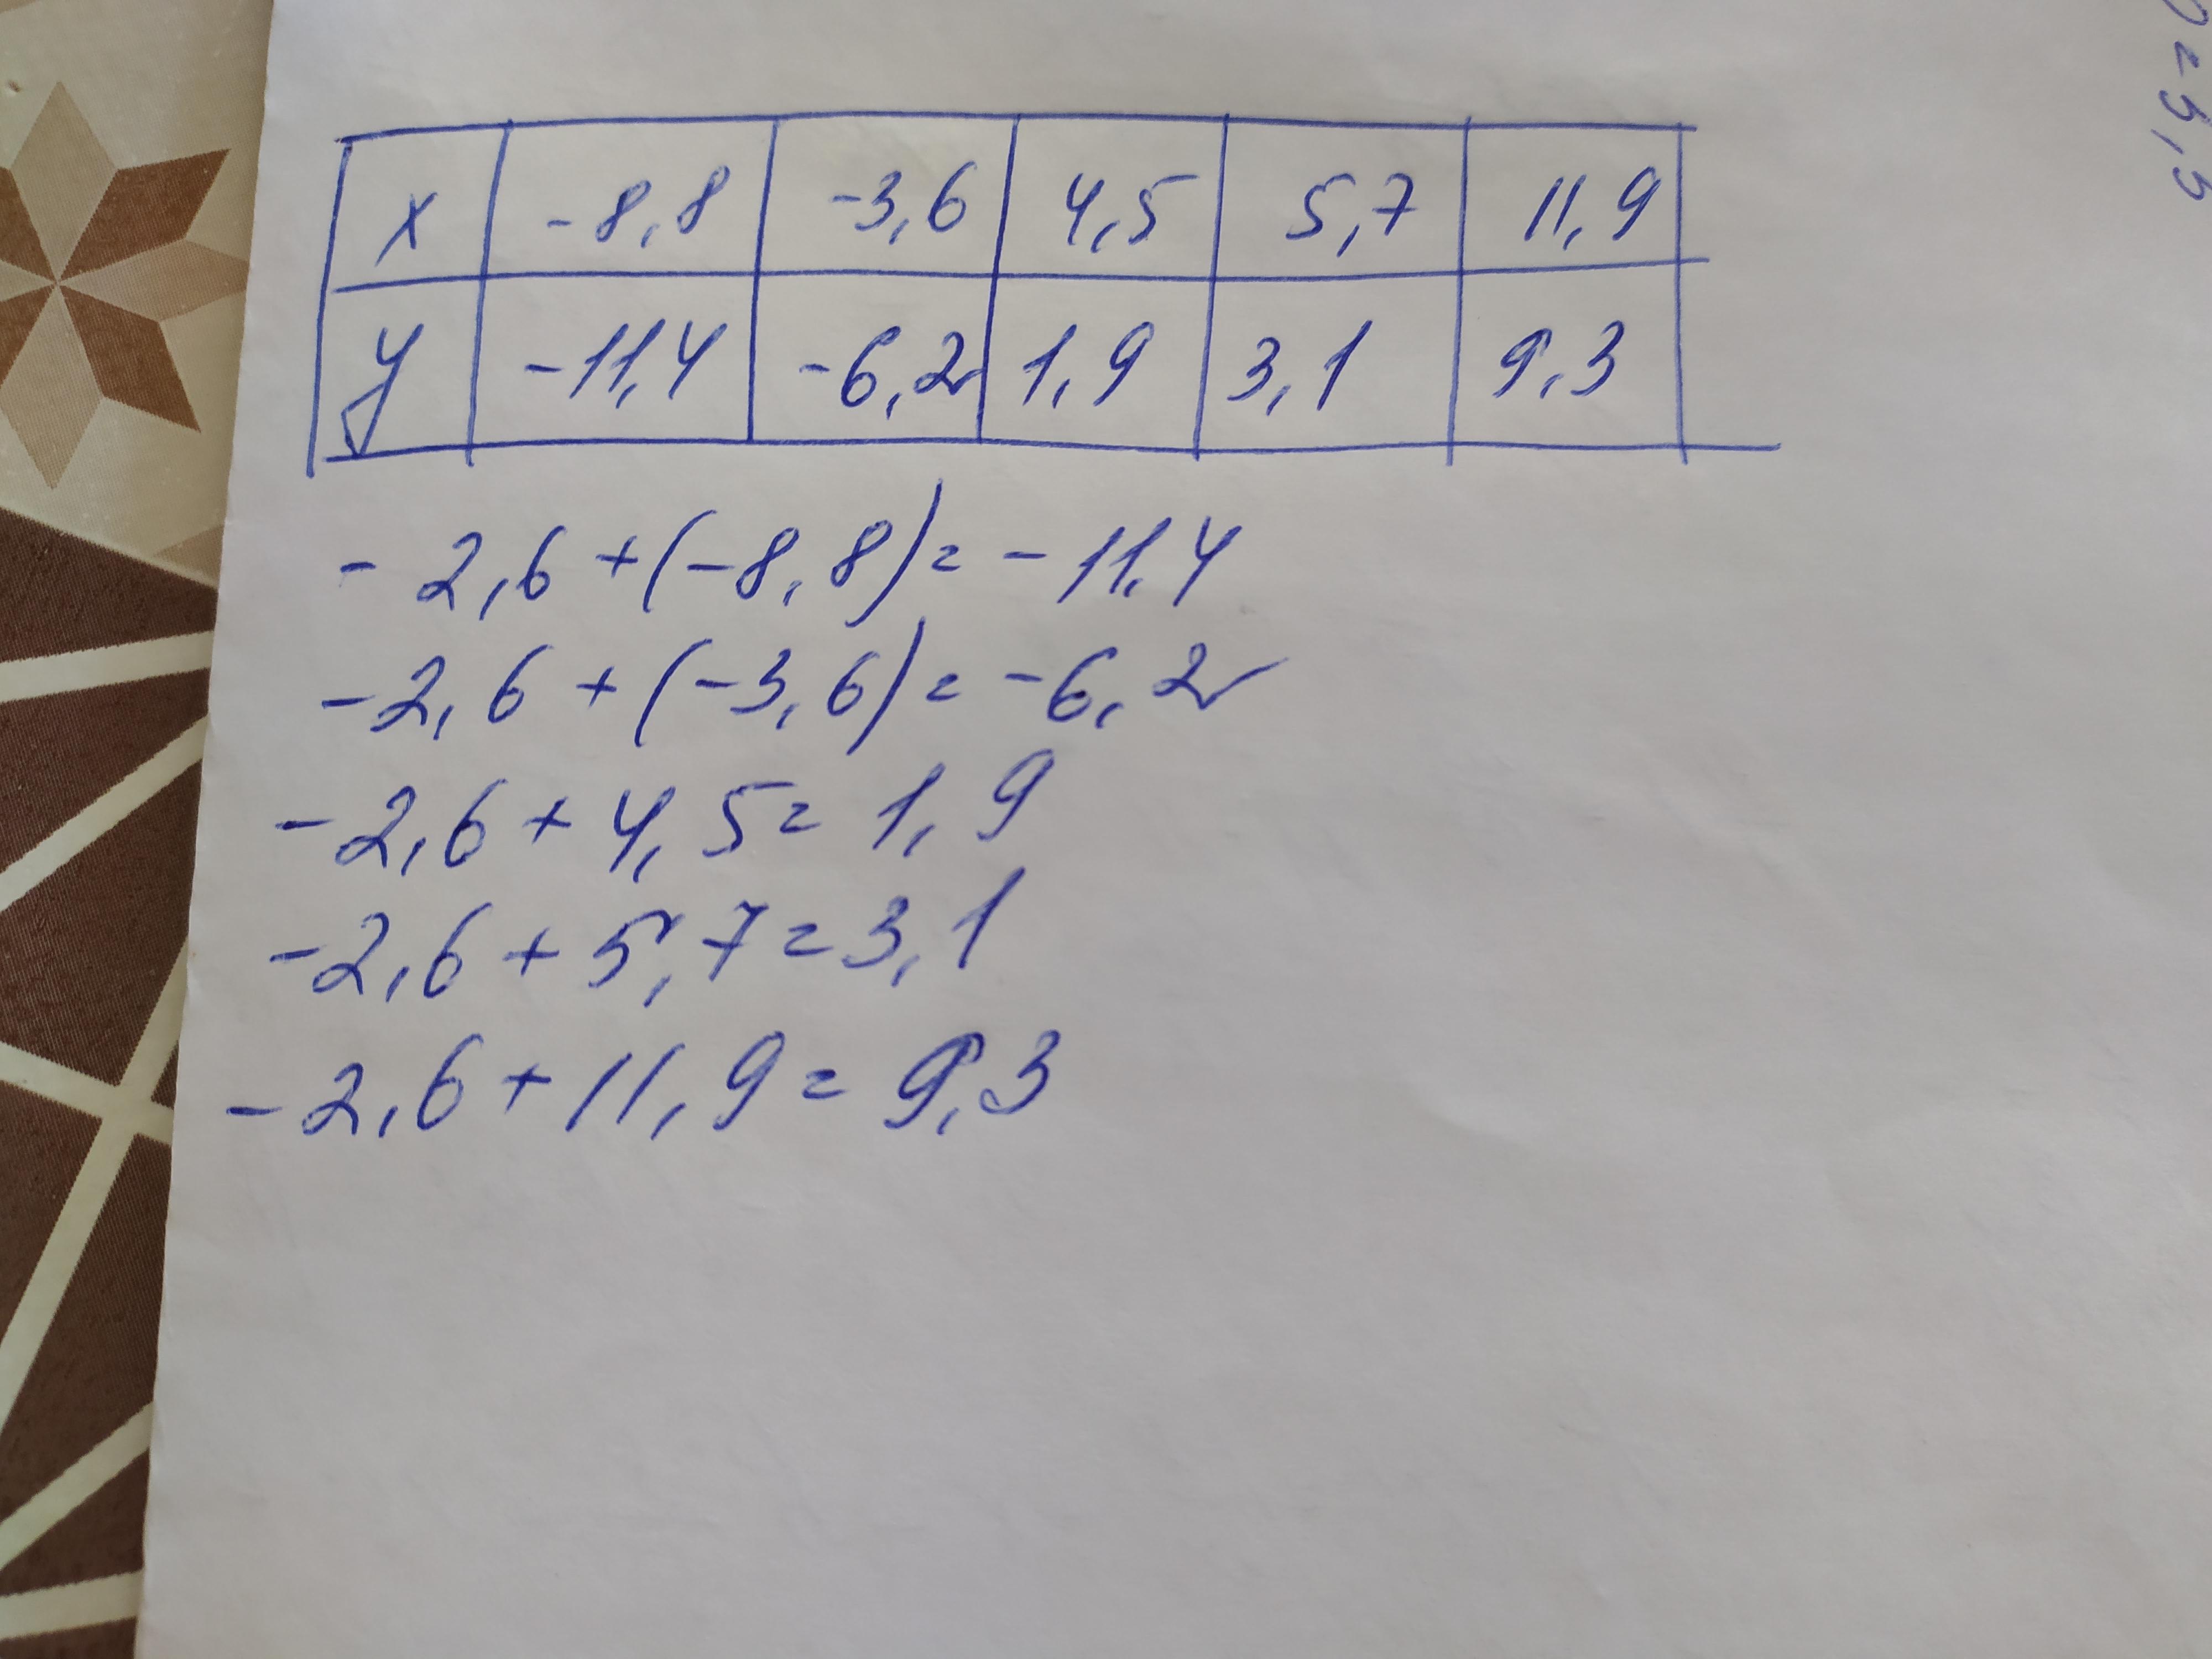 x -8,8 -3,6 4,5 5,7 11,9
y -11,4 -6,2 1,9 3,1 9,3
- 2,6 + (-8,8) = - 11,4
-2,6 + (-3,6) = -6,2
-2,6 + 4,5 = 1,9
-2,6 + 5,7 = 3,1
-2,6 + 11,9 = 9,3